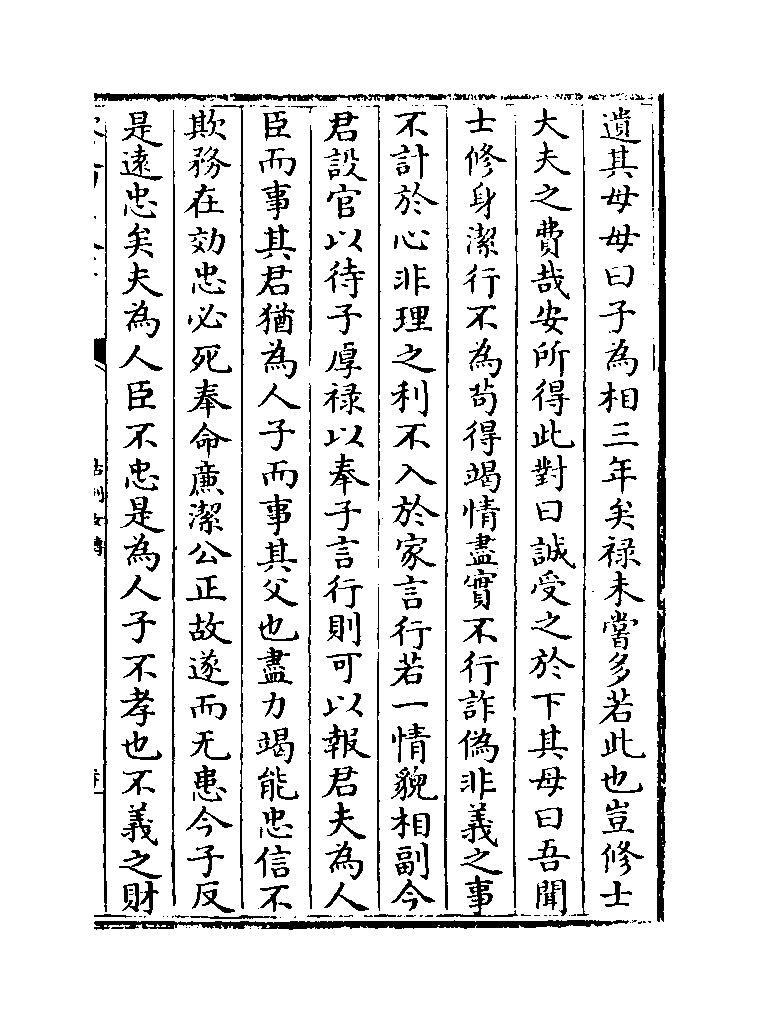 遺其母母曰子為相三年矣禄未嘗多若此也豈修士
大夫之費哉安所得此對曰誠受之於下其母曰吾聞
士修身潔行不為苟得竭情盡實不行詐偽非義之事
不計於心非理之利不入於家言行若一情貌相副今
君設官以待子厚禄以奉子言行則可以報君夫為人
臣而事其君猶為人子而事其父也盡力竭能忠信不
欺務在効忠必死奉命㢘潔公正故遂而无患今子反
是逺忠矣夫為人臣不忠是為人子不孝也不義之財
古列女傳